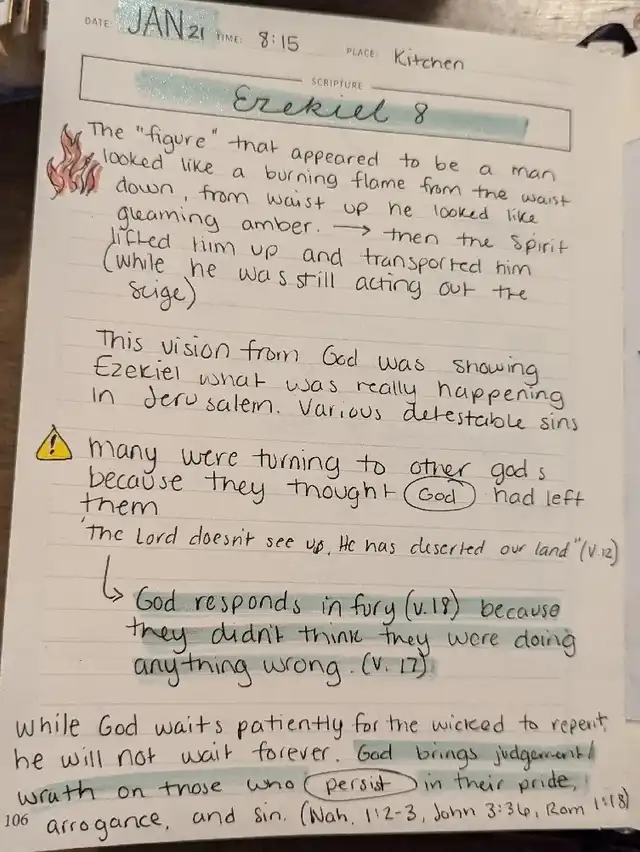 DATE: JAN 21 TIME: 8:15 PLACE: Kitchen
SCRIPTURE
Ezekiel 8
The "figure" that appeared to be a man
looked like a burning flame from the waist
down, from waist up he looked like
gleaming amber. → then the Spirit
lifted him up and transported him
(while he was still acting out the
seige)
This vision from God was showing
Ezekiel what was really happening
in Jerusalem. Various detestable sins
many were turning to other gods
because they thought God had left
them
"The Lord doesn't see up, He has deserted our land" (v.12)
↳ God responds in fury (v.18) because
they didn't think they were doing
anything wrong. (v. 17)
While God waits patiently for the wicked to repent,
he will not wait forever. God brings judgement/
wrath on those who persist in their pride,
arrogance, and sin. (Nah. 1:2-3, John 3:36, Rom 1:18)
106